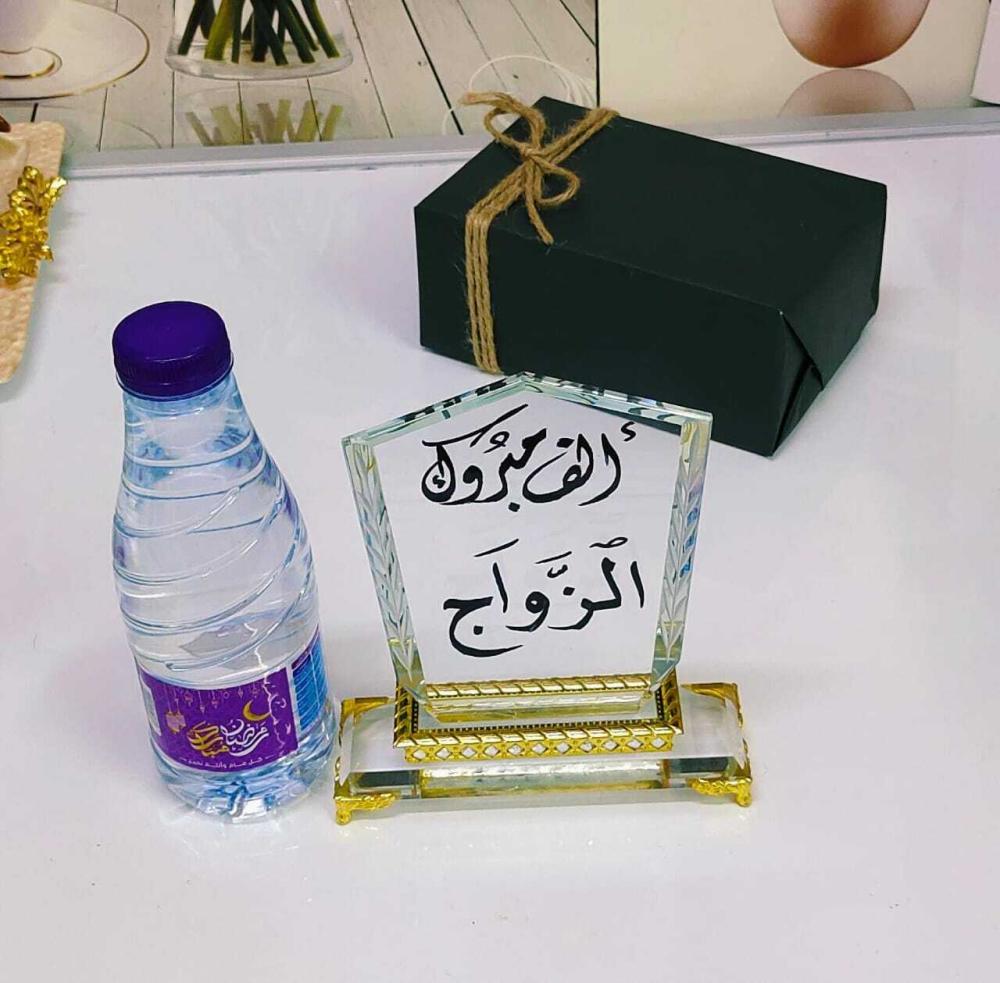 ألف مبروك
الزواج
رمضان مبارك
كل عام وأنتم بخير